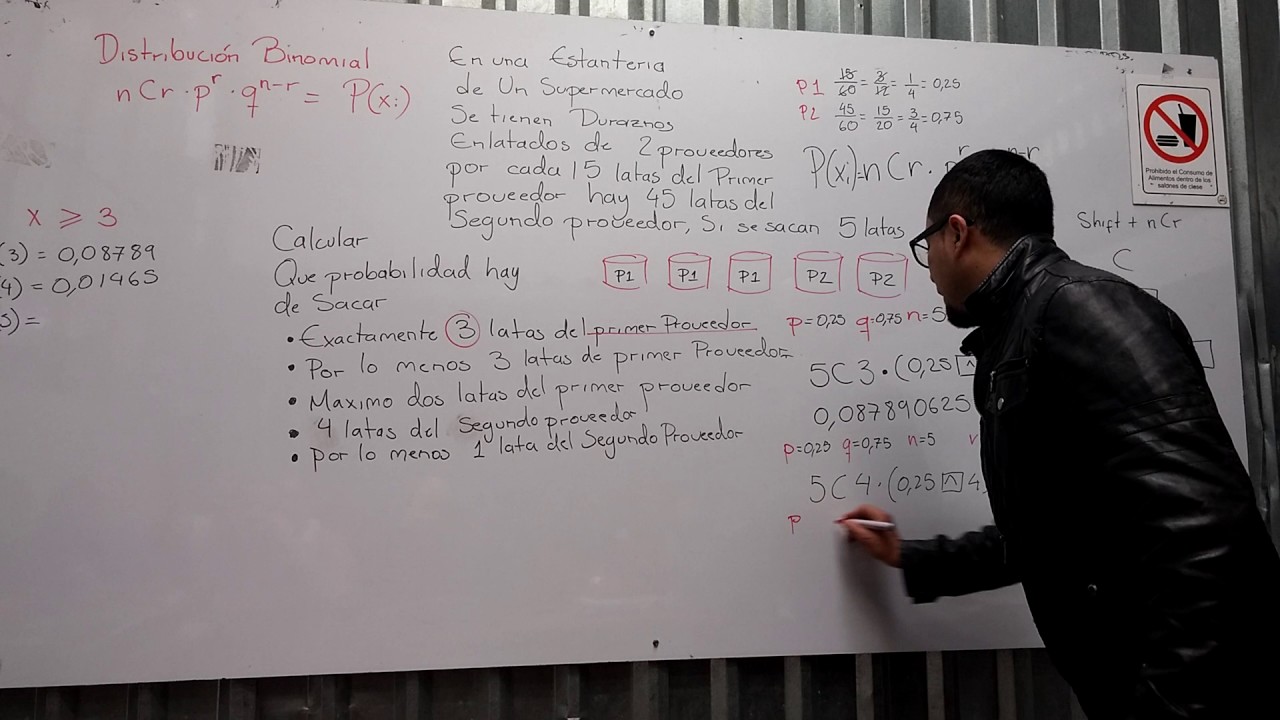 Distribución Binomial
nCr · p^r · q^n-r = P(xi)
x ⩾ 3
(3) = 0,08789
(4) = 0,01465
5) =
En una Estanteria
de Un Supermercado
Se tienen Duraznos
Enlatados de 2 proveedores
por cada 15 latas del Primer
proveedor hay 45 latas del
Segundo proveedor, Si se sacan 5 latas
Calcular
Que probabilidad hay
de Sacar
• Exactamente 3 latas del primer Proveedor
• Por lo menos 3 latas de primer Proveedor
• Maximo dos latas del primer proveedor
• 4 latas del Segundo proveedor
• por lo menos 1 lata del Segundo Proveedor
P1 P1 P1 P2 P2
P1 15/60 = 3/12 = 1/4 = 0,25
P2 45/60 = 15/20 = 3/4 = 0,75
P(xi)=nCr · p^r n-r
Shift + nCr
C
p=0,25 q=0,75 n=5
5C3·(0,25^
0,087890625
p=0,25 q=0,75 n=5
5C4·(0,25^4)
p
Prohibido el Consumo de
Alimentos dentro de los
salones de clase